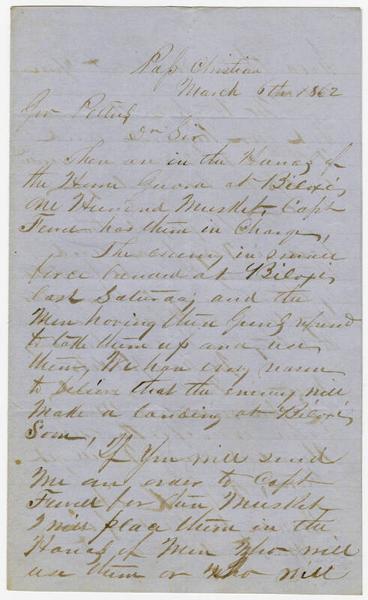 Pass Christian
March 6th 1862
Gov Pettus
Dr Sir
There are in the Hands of
the Home Guard at Biloxi,
One Hundred Muskets, Capt
Fewell has them in Charge,
The enemy in small
force landed at Biloxi,
last Saturday and the
Men having these Guns refused
to take them up and use
them, We have every reason
to believe that the enemy will
make a landing at Biloxi,
Soon, If You will send
Me an order to Capt
Fewell for these Muskets
I will place them in the
Hands of Men Who will
use them or who will